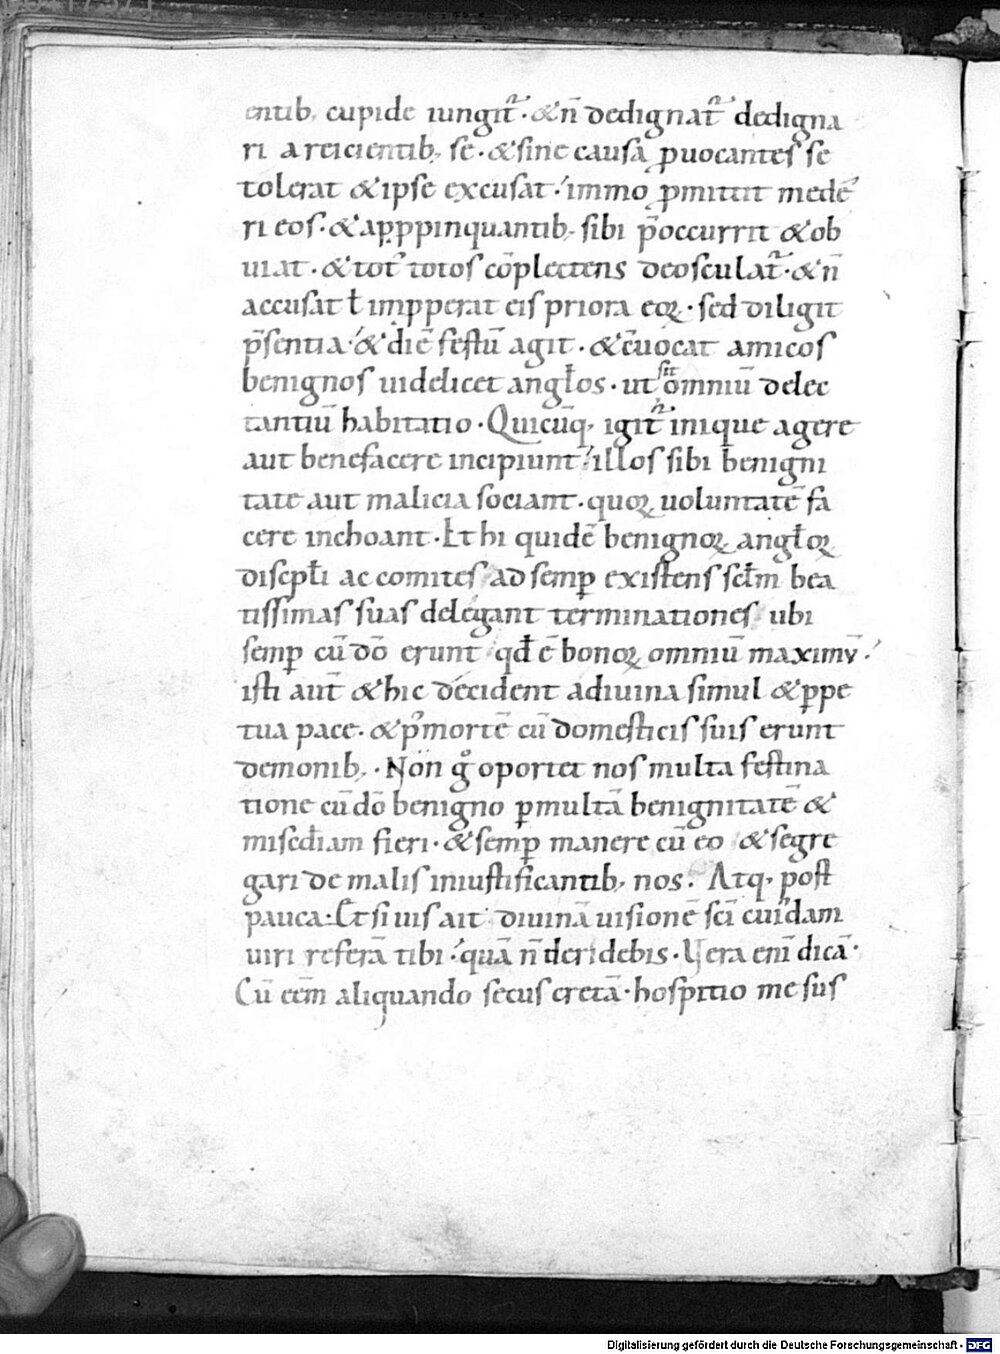 entib; cupide iungit᷑ · &n̄ dedignat᷑ dedigna
ri a reicientib; se · & sine causa ꝓuocantes se
tolerat & ipse excusat · immo ꝓmittit medē
ri eos · & apꝓpinquantib; sibi p̄occurrit & ob
uiat · & tot᷑ totos cōplectens deosculat᷑ · & n̄
accusat ł imꝓperat eis priora eoꝝ · sed diligit
p̄sentia · & diē festū agit · & cōuocat amicos
benignos uidelicet angłos · ut sit omniū delec
tantiū habitatio · Quicūq; igit᷑ inique agere
aut benefacere incipiunt · illos sibi benigni
tate aut malicia sociant · quoꝝ uoluntatē fa
cere inchoant · Et hi quidē benignoꝝ angłoꝝ
discipłi ac comites ad semꝑ existens scłm bea
tissimas suas delegant terminationes ubi
semꝑ cū dō erunt qđ ē bonoꝝ omniū maximū ·
isti aut̄ & hic decident a diuina simul & ꝑpe
tua pace · & p᷒ mortē cū domesticis suis erunt
demonib; · Non gͦ oportet nos multa festina
tione cū dō benigno ꝑ multā benignitatē &
misediam fieri · & semꝑ manere cū eo & segre
gari de malis iniustificantib; nos · Atq; post
pauca · Et si uis ait diuinā uisionē sci cuidam
uiri referā tibi · quā n̄ deridebis · Vera eni dicā ·
Cū eēm aliquando secus cretā · hospitio me sus
Digitalisierung gefördert durch die Deutsche Forschungsgemeinschaft - DFG